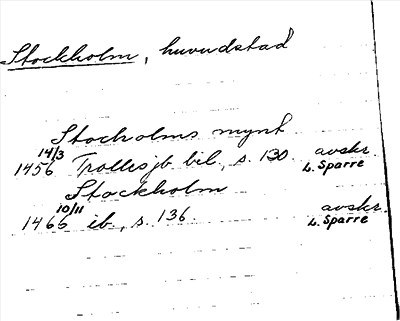 Stockholm, huvudstad
Stocholms mynt
14/3
1456 Trollesjb bil., s. 130. avskr.
L. Sparre
Stockholm
10/11
1466 ib., s. 136 avskr.
L. Sparre